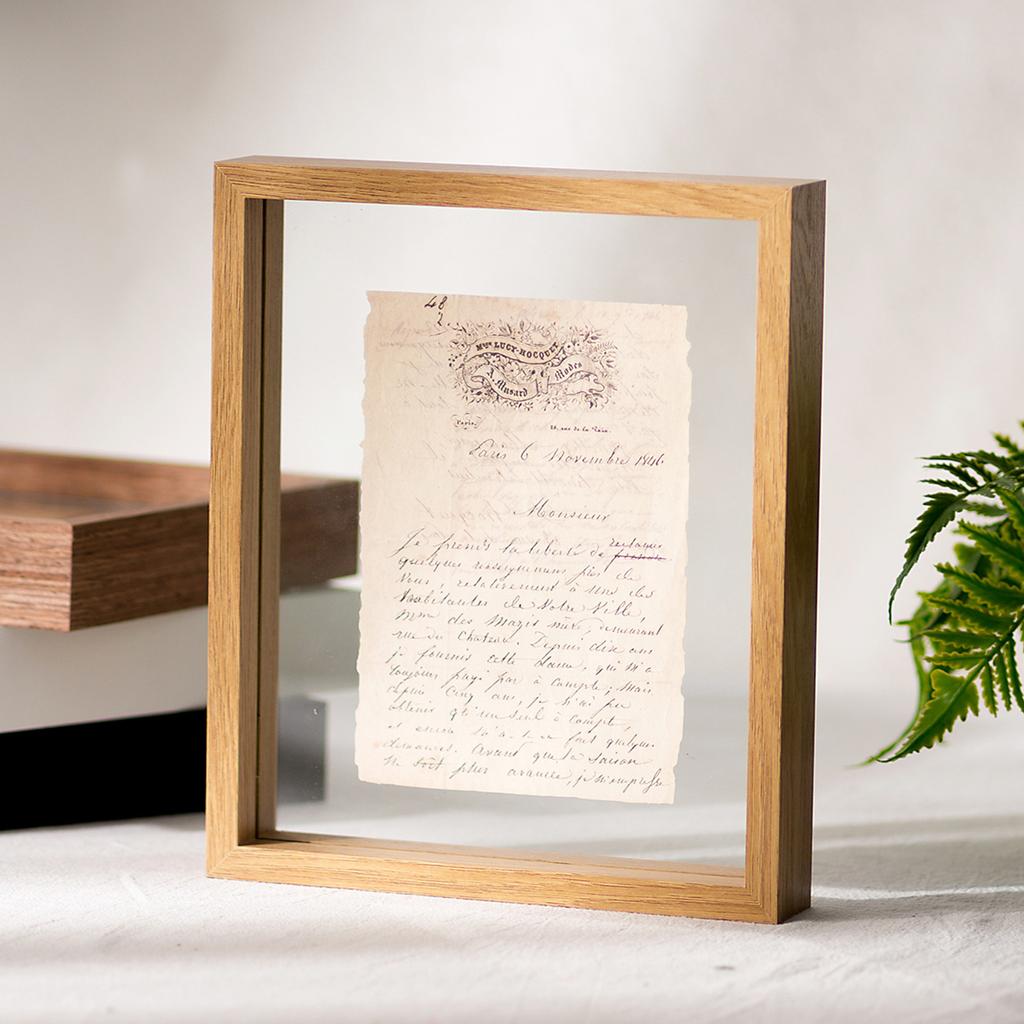 48
2
Mme LUCY-HOCQUET
A. Musard
Modes
Paris
rue de la Paix
Paris 6 Novembre 1846
Monsieur
Je prens la liberté de prendre
quelques renseignemens près de
Vous, relativement à une des
habitantes de Notre Ville,
mme des Magis mère, demeurant
rue du Chateau. Depuis dix ans
je fournis cette dame, qui m'a
toujours payé par à compte; Mais
depuis Cinq ans je n'ai pu
obtenir qu'un seul à compte,
et encore
fait quelque
demandes. Avant que la Saison
ne soit plus avancée, je m'empresse